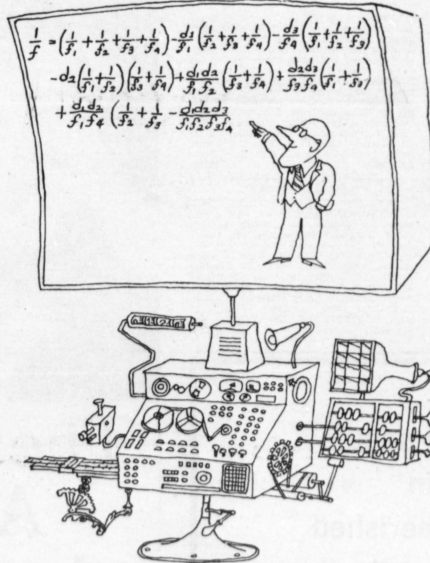 1/f = (1/f₁ + 1/f₂ + 1/f₃ + 1/f₄) - d₁/f₁ (1/f₂ + 1/f₃ + 1/f₄) - d₃/f₄ (1/f₁ + 1/f₂ + 1/f₃)
- d₂ (1/f₁ + 1/f₂) (1/f₃ + 1/f₄) + d₁d₂/f₁f₂ (1/f₃ + 1/f₄) + d₂d₃/f₃f₄ (1/f₁ + 1/f₂)
+ d₁d₃/f₁f₄ (1/f₂ + 1/f₃ - d₁d₂d₃/f₁f₂f₃f₄